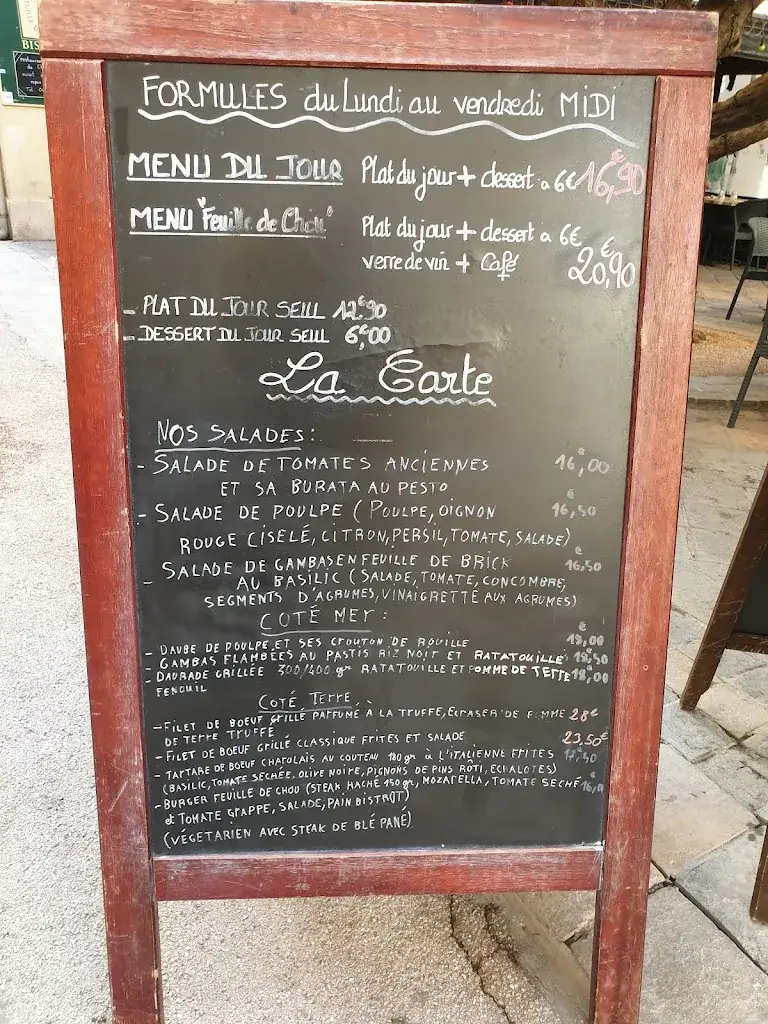 BIS
FORMULES du Lundi au vendredi MIDI
MENU DU JOUR Plat du jour + dessert a 6€ 16,€90
MENU "Feuille de Chou" Plat du jour + dessert a 6€
verre de vin + Café 20,€90
- PLAT DU JOUR SEUL 12,€90
- DESSERT DU JOUR SEUL 6,€00
La Carte
NOS SALADES:
- SALADE DE TOMATES ANCIENNES 16,€00
ET SA BURATA AU PESTO
- SALADE DE POULPE (POULPE, OIGNON 16,€50
ROUGE CISELÉ, CITRON, PERSIL, TOMATE, SALADE)
- SALADE DE GAMBAS EN FEUILLE DE BRICK 16,€50
AU BASILIC (SALADE, TOMATE, CONCOMBRE,
SEGMENTS D'AGRUMES, VINAIGRETTE AUX AGRUMES)
COTÉ MER:
- DAUBE DE POULPE ET SES CROUTON DE ROUILLE 18,€00
- GAMBAS FLAMBÉES AU PASTIS RIZ NOIR ET RATATOUILLE 18,50
- DAURADE GRILLÉE 300/400 gr RATATOUILLE ET POMME DE TERRE 18,00
FENOUIL
COTÉ TERRE
- FILET DE BOEUF GRILLÉ PARFUMÉ À LA TRUFFE, ECRASER DE POMME 28€
DE TERRE TRUFFÉ
- FILET DE BOEUF GRILLÉ CLASSIQUE FRITES ET SALADE 23,50€
- TARTARE DE BOEUF CHAROLAIS AU COUTEAU 180 gr à L'ITALIENNE FRITES 17,50
(BASILIC, TOMATE SECHÉE, OLIVE NOIRE, PIGNONS DE PINS RÔTI, ECHALOTES)
- BURGER FEUILLE DE CHOU (STEAK HACHÉ 150 gr, MOZARELLA, TOMATE SECHÉ
et TOMATE GRAPPE, SALADE, PAIN BISTROT)
(VÉGETARIEN AVEC STEAK DE BLÉ PANÉ)